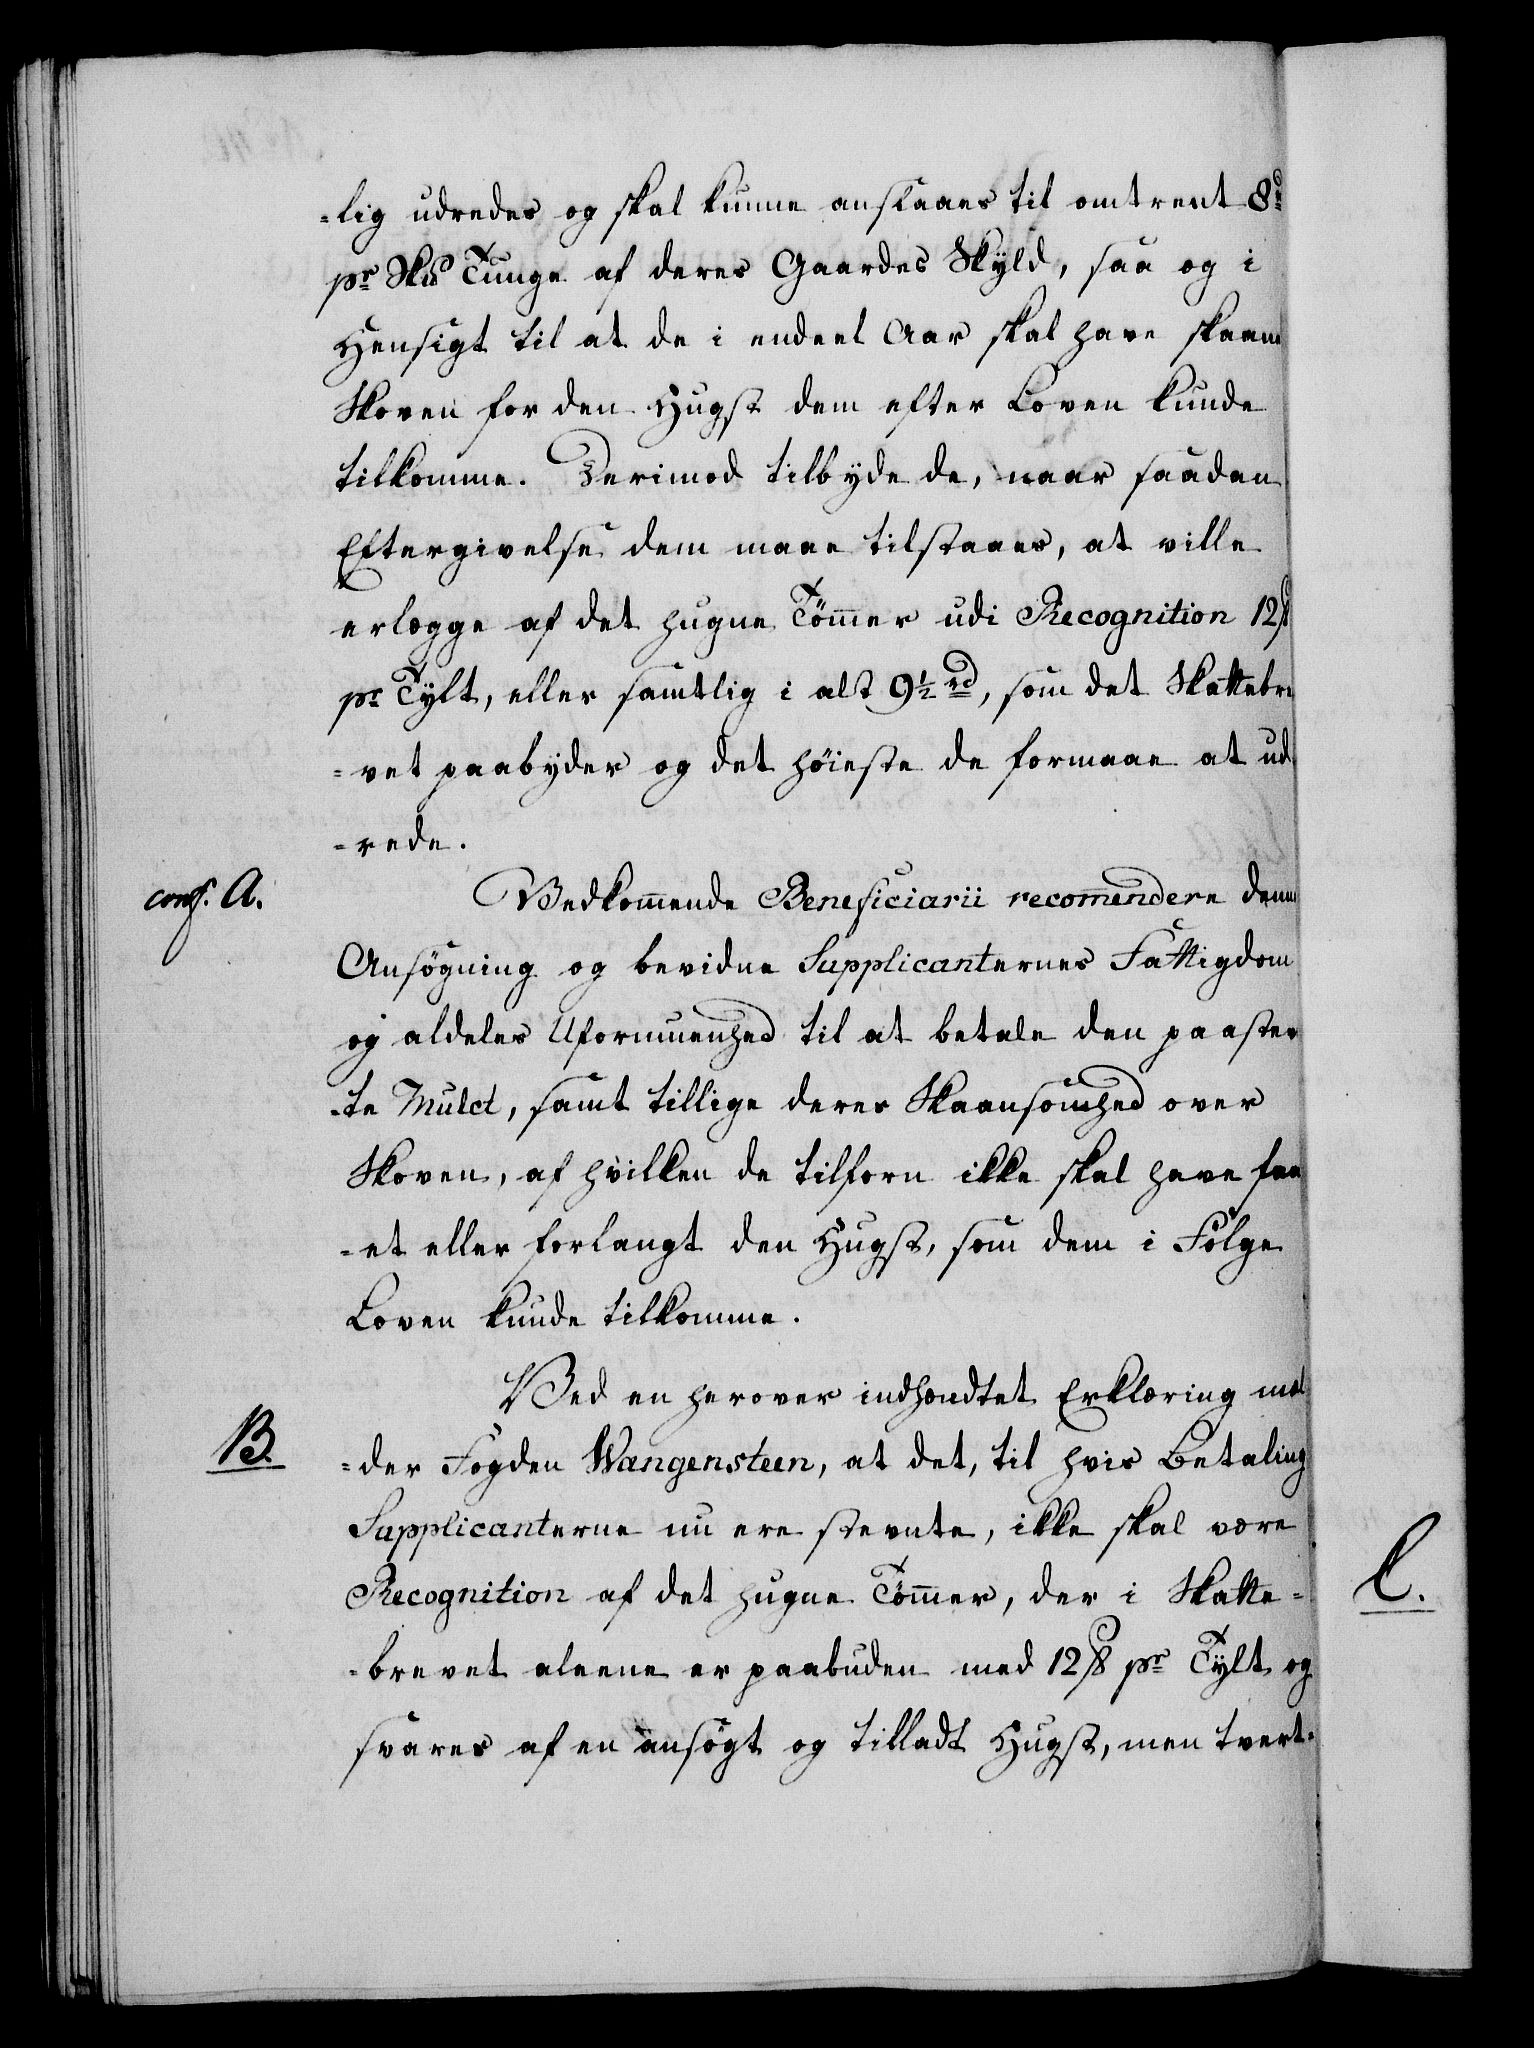 -lig udredes og skal kunne anslaaes til omtrent 8rd
pr Sku Tunge af deres Gaardes Skyld, saa og i
Hensigt til at de i endeel Aar skal have skaan
Skoven for den Hugst dem efter Loven kunde
tilkomme. Derimod tilbyde de, naar saadan
Eftergivelse dem maae tilstaaes, at ville
erlægge af det hugne Tömmer udi Recognition 12ß
pr Tylt, eller samtlig i alt 9½ rd, som det Skattebre
=vet paabyder og det höieste de formaae at ud
=rede.
conf. A.
Vedkommende Beneficiarii recommendere denne
Ansögning og bevidne Supplicanternes Fattigdom
og aldeles Uformuenhed til at betale den paastev
-te Mulct, samt tillige deres Skaansomhed over
Skoven, af hvilken de tilforn ikke skal have faa
=et eller forlangt den Hugst, som dem i Fölge
Loven kunde tilkomme.
Ved en herover indhændtet Erklæring mel
B.
=der Fogden Wangensteen, at det, til hvis Betaling
Supplicanterne nu ere stevnte, ikke skal være
Recognition af det hugne Tömmer, der i Skatte=
C.
=brevet aleene er paabuden med 12ß pr Tylt og
svares af en ansögt og tilladt Hugst, men tvert=